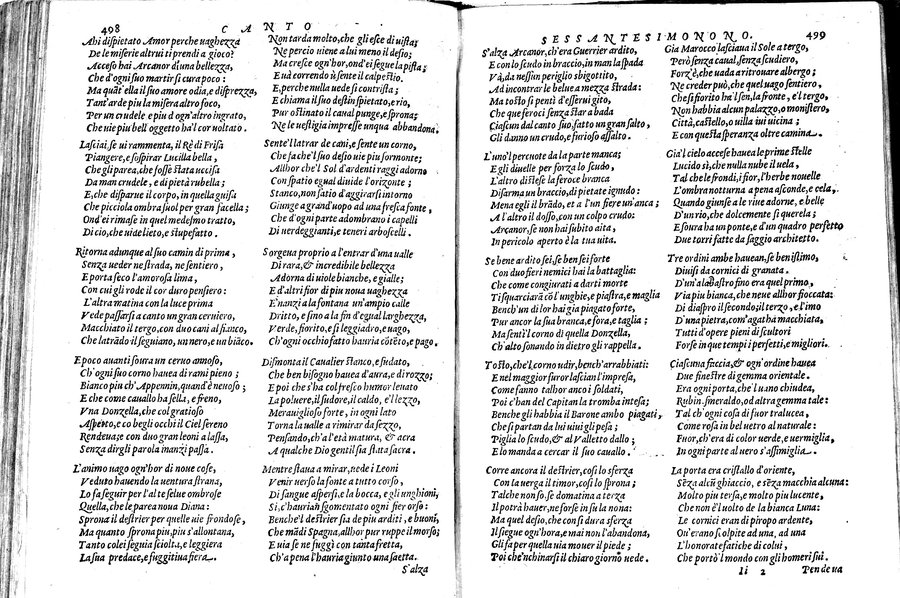 498 CANTO
Ahi dispietato Amor perche uaghezza
De le miserie altrui ti prendi a gioco?
Acceso hai Arcanor d'una bellezza,
Che d'ogni suo martir si cura poco:
Ma quãt' ella il suo amore odia, e disprezza,
Tant' arde piu la misera altro foco,
Per un crudele e piu d'ogn'altro ingrato,
Che uie piu bell oggetto ha'l cor uoltato.
Lasciai, se ui rammenta, il Rè di Frisa
Piangere, e sospirar Lucilla bella,
Che gli parea, che fosse stata uccisa
Da man crudele, e di pietà rubella;
E, che disparue il corpo, in quella guisa
Che picciola ombra suol per gran facella;
Ond'ei rimase in quel medesmo tratto,
Di cio, che uide lieto, e stupefatto.
Ritorna adunque al suo camin di prima,
Senza ueder ne strada, ne sentiero,
E porta seco l'amorosa lima,
Con cui gli rode il cor duro pensiero:
L'altra matina con la luce prima
Vede passarsi a canto un gran ceruiero,
Macchiato il tergo, con duo cani al fianco,
Che latrãdo il seguiano, un nero, e un biãco.
E poco auanti scura un ceruo annoso,
Ch'ogni suo corno hauea di rami pieno;
Bianco piu ch'Appennin, quand'è neuoso;
E che come cauallo ha sella, e freno,
Vna Donzella, che col gratioso
Aspetto, e co begli occhi il Ciel sereno
Rendeua; e con duo gran leoni a lassa,
Senza dirgli parola inanzi passa.
L'animo uago ogn'hor di noue cose,
Veduto hauendo la uentura strana,
Lo fa seguir per l'alte selue ombrose
Quella, che le parea noua Diana:
Sprona il destrier per quelle uie frondose,
Ma quanto sprona piu, piu s'allontana,
Tanto colei seguia sciolta, e leggiera
La sua predace, e fuggitiua fiera.
Non tarda molto, che gli esce di uista;
Ne percio uiene a lui meno il desio;
Ma cresce ogn'hor, ond'ei segue la pista;
E uà correndo ù sente il calpestio.
E, perche nulla uede si contrista;
E chiama il suo destin spietato, e rio,
Pur ostinato il caual punge, e sprona;
Ne le uestigia impresse unqua abbandona.
Sente'l latrar de cani, e sente un corno,
Che fa che'l suo desio uie piu sormonte;
Allhor che'l Sol d'ardenti raggi adorno
Con spatio equal diuide l'orizonte;
Stanco, non satio d'aggirarsi intorno
Giunge a grand'uopo ad una fresca fonte,
Che d'ogni parte adombrano i capelli
Di uerdeggianti, e teneri arboscelli.
Sorgeua proprio a l'entrar d'una ualle
Di rara, & incredibile bellezza
Adorna di uiole bianche, e gialle;
E d'altri fior di piu noua uaghezza
E'nanzi a la fontana un'ampio calle
Dritto, e sino a la fin d'egual larghezza,
Verde, fiorito, e sì leggiadro, e uago,
Ch'ogni occhio fatto hauria cõtẽto, e pago.
Dismonta il Caualier stanco, e sudato,
Che ben bisogno hauea d'aura, e di rozzo;
E poi che s'ha col fresco humor leuato
La poluere, il sudore, il caldo, e'l lezzo,
Merauiglioso forte, in ogni lato
Torna la ualle a rimirar da sezzo,
Pensando, ch'a l'età matura, & acra
A qualche Dio gentil sia stata sacra.
Mentre staua a mirar, ne de i Leoni
Venir uerso la fonte a tutto corso,
Di sangue aspersi, e la bocca, e gli unghioni,
Si, c'haurian sgomentato ogni fier orso:
Benche'l destrier sia de piu arditi, e buoni,
Che mãdi Spagna, allhor pur ruppe il morso;
E uia se ne fuggì con tanta fretta,
Ch'a pena l'hauria giunto una saetta.
S'alza
SESSANTESIMONONO. 499
S'alza Arcanor, ch'era Guerrier ardito,
E con lo scudo in braccio, in man la spada
Và, da nessun periglio sbigottito,
Ad incontrar le belue a mezza strada:
Ma tosto si pentì d'esserui gito,
Che que feroci senza star a bada
Ciascun dal canto suo, fatto un gran salto,
Gli danno un crudo, e furioso assalto.
L'uno l percuote da la parte manca;
E gli diuelle per forza lo scudo,
L'altro distese la feroce branca
Disarma un braccio, di pietate ignudo:
Mena egli il brãdo, et a l'un fiere un'anca;
A l'altro il dosso, con un colpo crudo:
Arcanor, se non hai subito aita,
In pericolo aperto è la tua uita.
Se bene ardito sei, se ben sei forte
Con duo fieri nemici hai la battaglia:
Che come congiurati a darti morte
Ti squarciarã cõ l'unghie, e piastra, e maglia
Bench'un di lor hai gia piagato forte,
Pur ancor la sua branca, e fora, e taglia;
Ma sentì'l corno di quella Donzella,
Ch'alto sonando in dietro gli rappella.
Tosto, che'l corno udir, bench'arrabbiati:
E nel maggior furor lascian l'impresa,
Come fanno talhor anco i soldati,
Poi c'han del Capitan la tromba intesa;
Benche gli habbia il Barone ambo piagati,
Che si partan da lui uiui gli pesa;
Piglia lo scudo, & al Valletto dallo;
E lo manda a cercar il suo cauallo.
Corre ancora il destrier, cosi lo sferza
Con la uerga il timor, cosi lo sprona;
Talche non so, se domatina a terza
Il potrà hauer, ne forse in su la nona:
Ma quel desio, che con si dura sferza
Il siegue ogn'hora, e mai non l'abandona,
Gli fa per quella uia mouer il piede;
Poi che'nchinarsi il chiaro giorno uede.
Gia Marocco lasciaua il Sole a tergo,
Però senza caual, senza scudiero,
Forz'è, che uada a ritrouare albergo;
Ne creder può, che quel uago sentiero,
Che sì fiorito ha'l sen, la fronte, e'l tergo,
Non habbia alcun palazzo, o monistero,
Città, castello, o uilla iui uicina;
E con questa speranza oltre camina.
Gia'l cielo accese hauea le prime stelle
Lucido sì, che nulla nube il uela,
Tal che le frondi, i fior, l'herbe nouelle
L'ombra notturna a pena asconde, e cela,
Quando giunse a le riue adorne, e belle
D'un rio, che dolcemente si querela;
E soura ha un ponte, e d'un quadro perfetto
Due torri fatte da saggio architetto.
Tre ordini ambe hauean, se ben istimo,
Diuisi da cornici di granata.
D'un'alabastro fino era quel primo,
Via piu bianca, che neue allhor fioccata:
Di diaspro il secondo, il terzo, e l'imo
D'una pietra, com'agatha macchiata,
Tutti d'opere pieni di scultori
Forse in que tempi i perfetti, e migliori.
Ciascuna faccia, & ogn'ordine hauea
Due finestre di gemma orientale.
Era ogni porta, che'l uano chiudea,
Rubin, smeraldo, od altra gemma tale:
Tal ch'ogni cosa di fuor tralucea,
Come rosa in bel uetro al naturale:
Fuor, ch'era di color uerde, e uermiglia,
In ogni parte al uero s'assimiglia.
La porta era cristallo d'oriente,
Sẽza alcũ ghiaccio, e sẽza macchia alcuna:
Molto piu tersa, e molto piu lucente,
Che non è l uolto de la bianca Luna:
Le cornici eran di piropo ardente,
Ou'erano scolpite ad una, ad una
L'honorate fatiche di colui,
Che portò'l mondo con gli homeri sui.
Ii 2 Pendeua